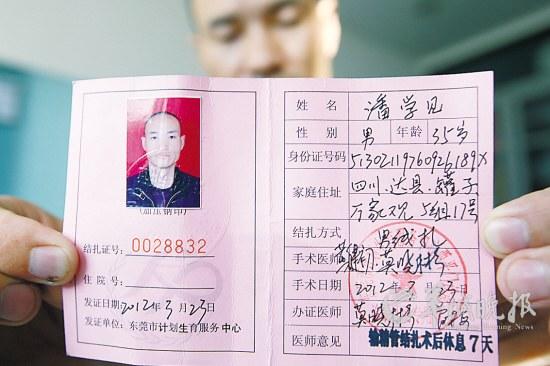 (加压钢印)
结扎证号: 0028832
住院号:
发证日期: 2012年3月23日
发证单位: 东莞市计划生育服务中心
姓名 潘学见
性别 男 年龄 35岁
身份证号码
家庭住址 四川.达县.罐子
5组17号
结扎方式 男绝扎
手术医师 莫晓彬
手术日期 2012年3月23日
办证医师 莫晓彬
医师意见 输精管结扎术后休息7天
晚报